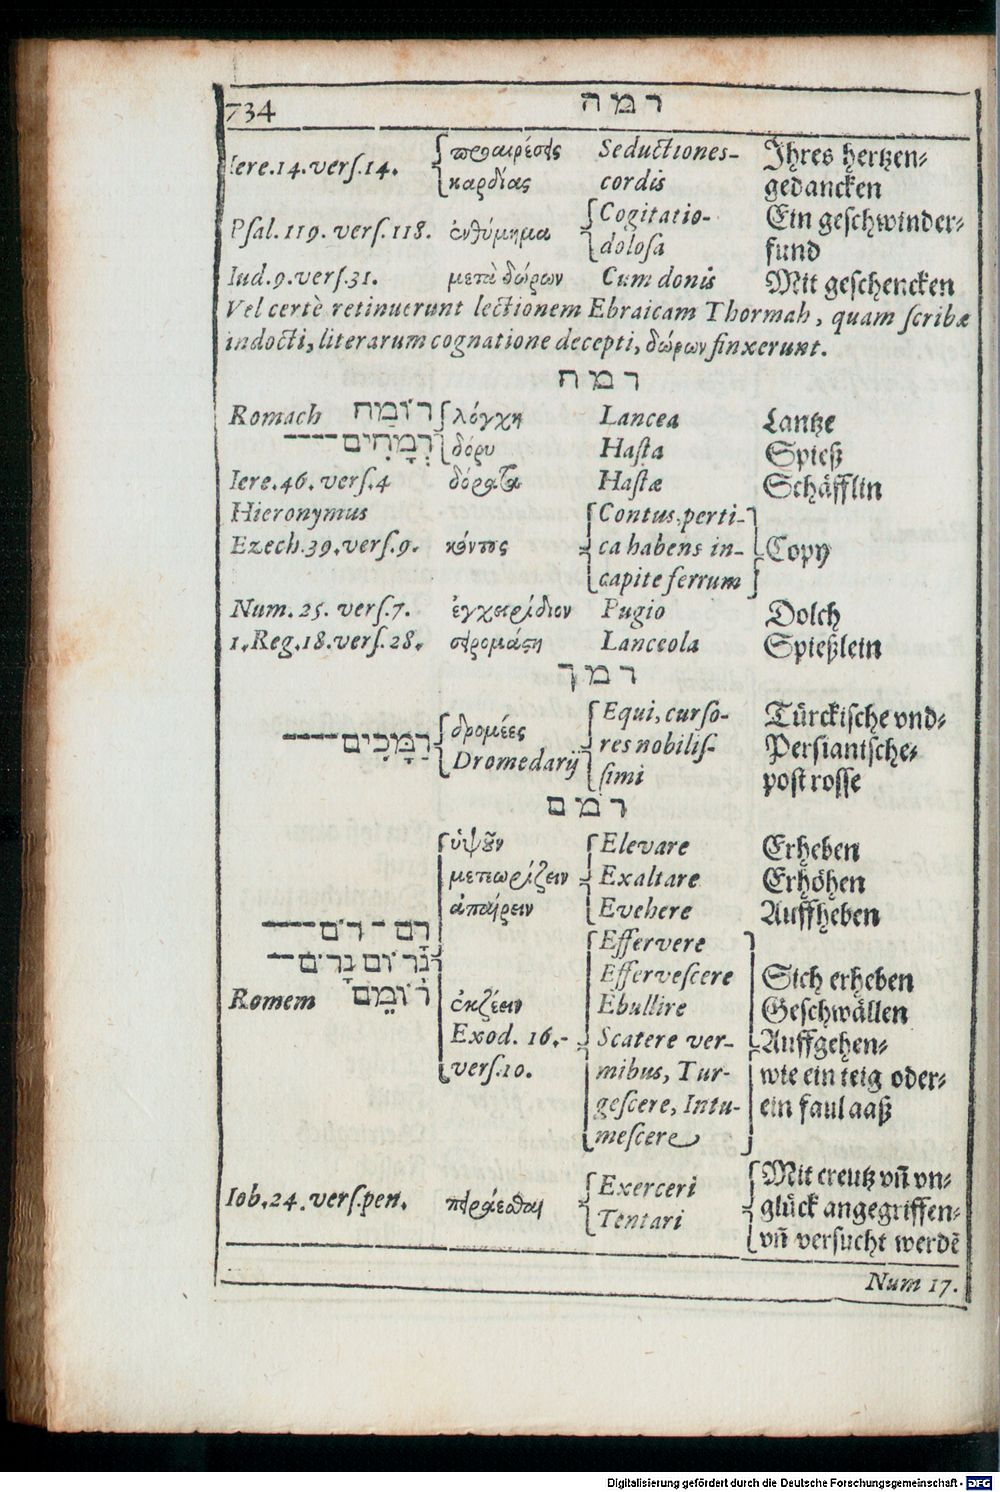 734 רמה
Iere.14.verſ.14. προαιρέσεις Seductiones- Ihres hertzen-
καρδίας cordis gedancken
Pſal.119.verſ.118. ἐνθύμημα Cogitatio- Ein geſchwinder-
doloſa fund
Iud.9.verſ.31. μετὰ δώρων Cum donis Mit geſchencken
Vel certè retinuerunt lectionem Ebraicam Thormah, quam ſcribæ
indocti, literarum cognatione decepti, δώρων finxerunt.
רמח
Romach רוֹמַח λόγχη Lancea Lantze
רְמָחִים δόρυ Haſta Spieß
Iere.46.verſ.4 δόρατα Haſtæ Schäfflin
Hieronymus Contus, perti-
Ezech.39.verſ.9. κόντος ca habens in- Copy
capite ferrum
Num. 25. verſ.7. ἐγχειρίδιον Pugio Dolch
1.Reg.18.verſ.28. σειρομάστη Lanceola Spießlein
רמך
δρομέες Equi, curſo- Türckiſche vnd-
רַמָּכִים res nobiliſ- Perſianiſche-
Dromedarij ſimi poſt roſſe
רמם
ὑψοῦν Elevare Erheben
μετεωρίζειν Exaltare Erhöhen
ἀπαίρειν Evehere Auffheben
רָם - רים Effervere
Efferveſcere Sich erheben
Romem רוֹמֵם ἐκζέειν Ebullire Geſchwällen
Exod. 16.- Scatere ver- Auffgehen-
verſ.10. mibus, Tur- wie ein teig oder-
geſcere, Intu- ein faul aaß
meſcere
Iob.24.verſ.pen. Exerceri Mit creutz vñ vn-
Tentari glück angegriffen-
vñ verſucht werdē
Num 17.
Digitalisierung gefördert durch die Deutsche Forschungsgemeinschaft - DFG